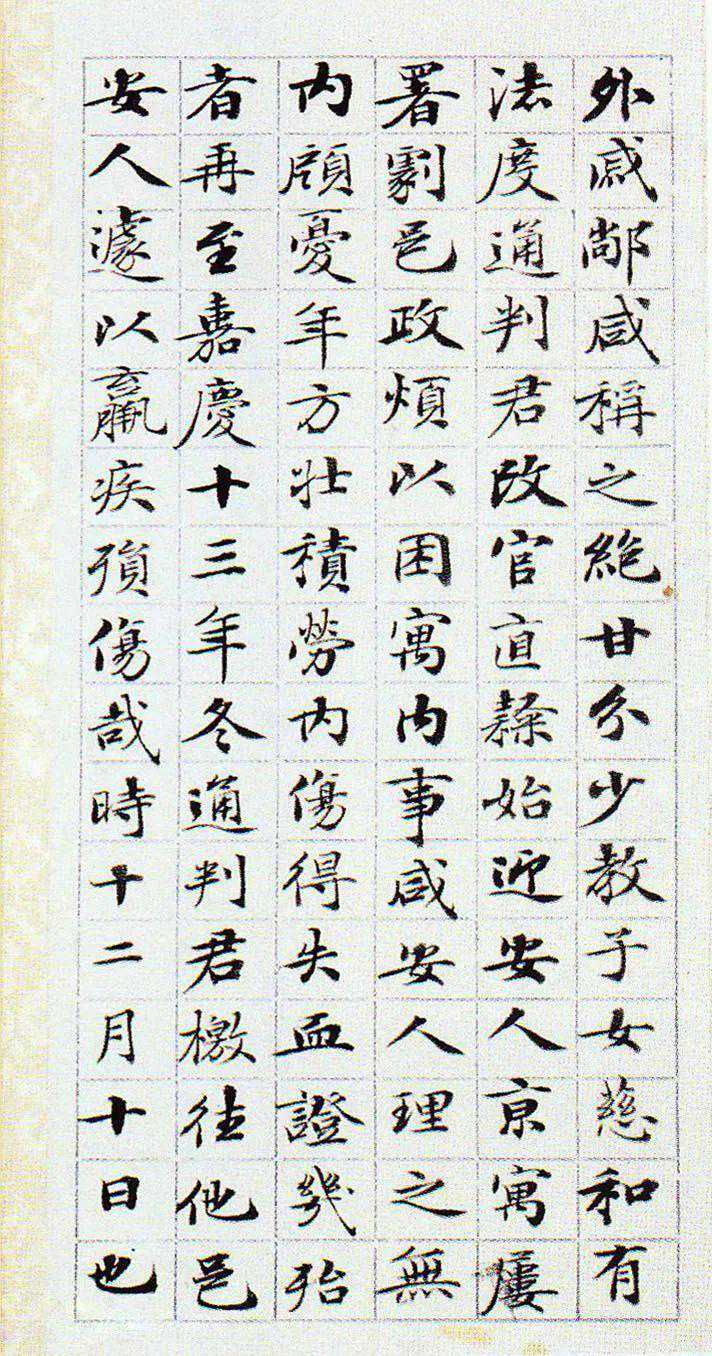 外戚鄰咸稱之絶甘分少教子女慈和有
法度通判君改官直隸始迎安人京寓屢
署劇邑政煩以困寓內事咸安人理之無
内顧憂年方壯積勞内傷得失血證幾殆
者再至嘉慶十三年冬通判君檄往他邑
安人遽以羸疾殞傷哉時十二月十日也